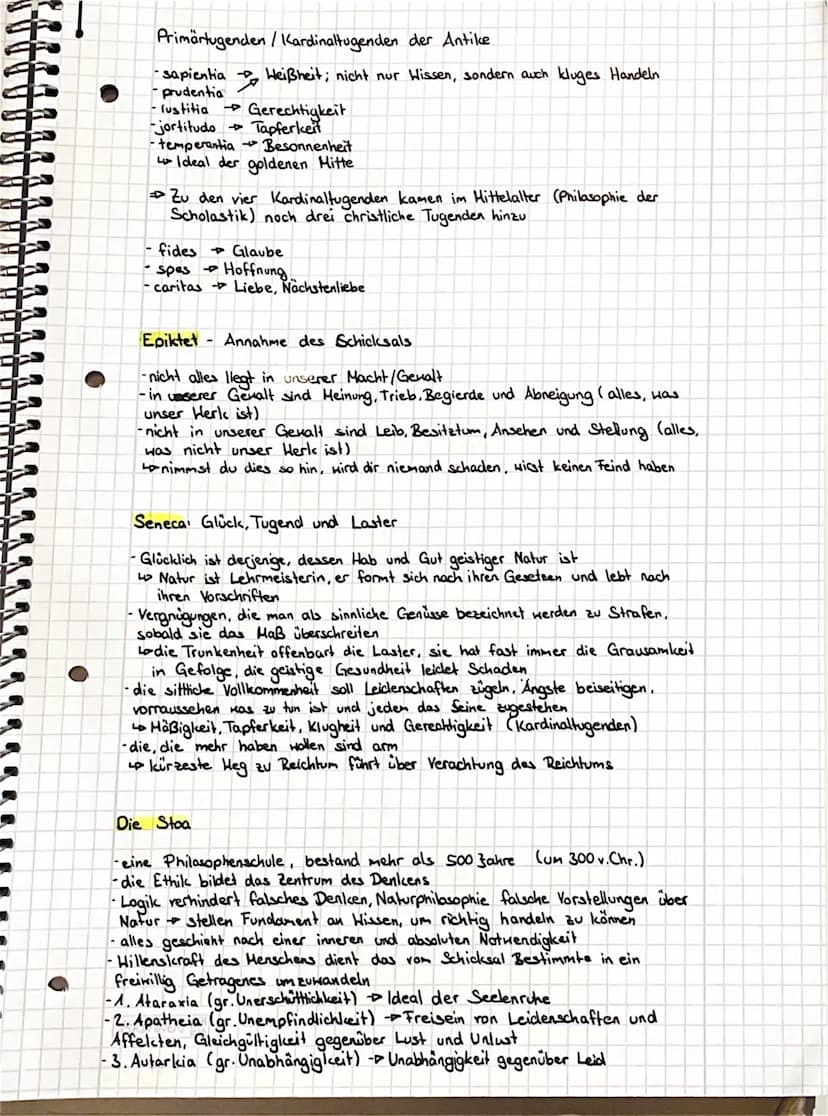 Primärtugenden / Kardinaltugenden der Antike
- sapientia → Weißheit; nicht nur Wissen, sondern auch kluges Handeln
- prudentia
- iustitia → Gerechtigkeit
- fortitudo → Tapferkeit
- temperantia → Besonnenheit
↳ Ideal der goldenen Mitte
⇒ Zu den vier Kardinaltugenden kamen im Mittelalter (Philosophie der
Scholastik) noch drei christliche Tugenden hinzu
- fides → Glaube
- spes → Hoffnung
- caritas → Liebe, Nächstenliebe
Epiktet - Annahme des Schicksals
- nicht alles liegt in unserer Macht/Gewalt
- in unserer Gewalt sind Meinung, Trieb, Begierde und Abneigung (alles, was
unser Werk ist)
- nicht in unserer Gewalt sind Leib, Besitztum, Ansehen und Stellung (alles,
was nicht unser Werk ist)
↳ nimmst du dies so hin, wird dir niemand schaden, wirst keinen Feind haben
Seneca: Glück, Tugend und Laster
- Glücklich ist derjenige, dessen Hab und Gut geistiger Natur ist
↳ Natur ist Lehrmeisterin, er formt sich nach ihren Gesetzen und lebt nach
ihren Vorschriften
- Vergnügungen, die man als sinnliche Genüsse bezeichnet werden zu Strafen,
sobald sie das Maß überschreiten
↳ die Trunkenheit offenbart die Laster, sie hat fast immer die Grausamkeit
in Gefolge, die geistige Gesundheit leidet Schaden
- die sittliche Vollkommenheit soll Leidenschaften zügeln, Ängste beiseitigen,
vorraussehen was zu tun ist und jeden das Seine zugestehen
↳ Mäßigkeit, Tapferkeit, Klugheit und Gerechtigkeit (Kardinaltugenden)
- die, die mehr haben wollen sind arm
↳ kürzeste Weg zu Reichtum führt über Verachtung des Reichtums
Die Stoa
- eine Philosophenschule, bestand mehr als 500 Jahre (um 300 v.Chr.)
- die Ethik bildet das Zentrum des Denkens
- Logik verhindert falsches Denken, Naturphilosophie falsche Vorstellungen über
Natur → stellen Fundament an Wissen, um richtig handeln zu können
- alles geschieht nach einer inneren und absoluten Notwendigkeit
- Willenskraft des Menschens dient das vom Schicksal Bestimmte in ein
freiwillig Getragenes umzuwandeln
- 1. Ataraxia (gr. Unerschüttlichkeit) → Ideal der Seelenruhe
- 2. Apatheia (gr. Unempfindlichkeit) → Freisein von Leidenschaften und
Affekten, Gleichgültigkeit gegenüber Lust und Unlust
- 3. Autarkia (gr. Unabhängigkeit) → Unabhängigkeit gegenüber Leid